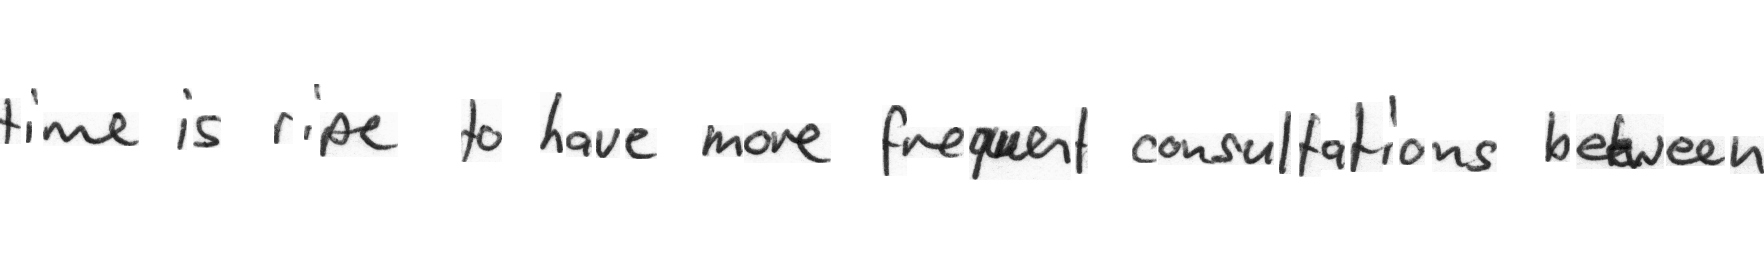 time is ripe to have more frequent consultations between